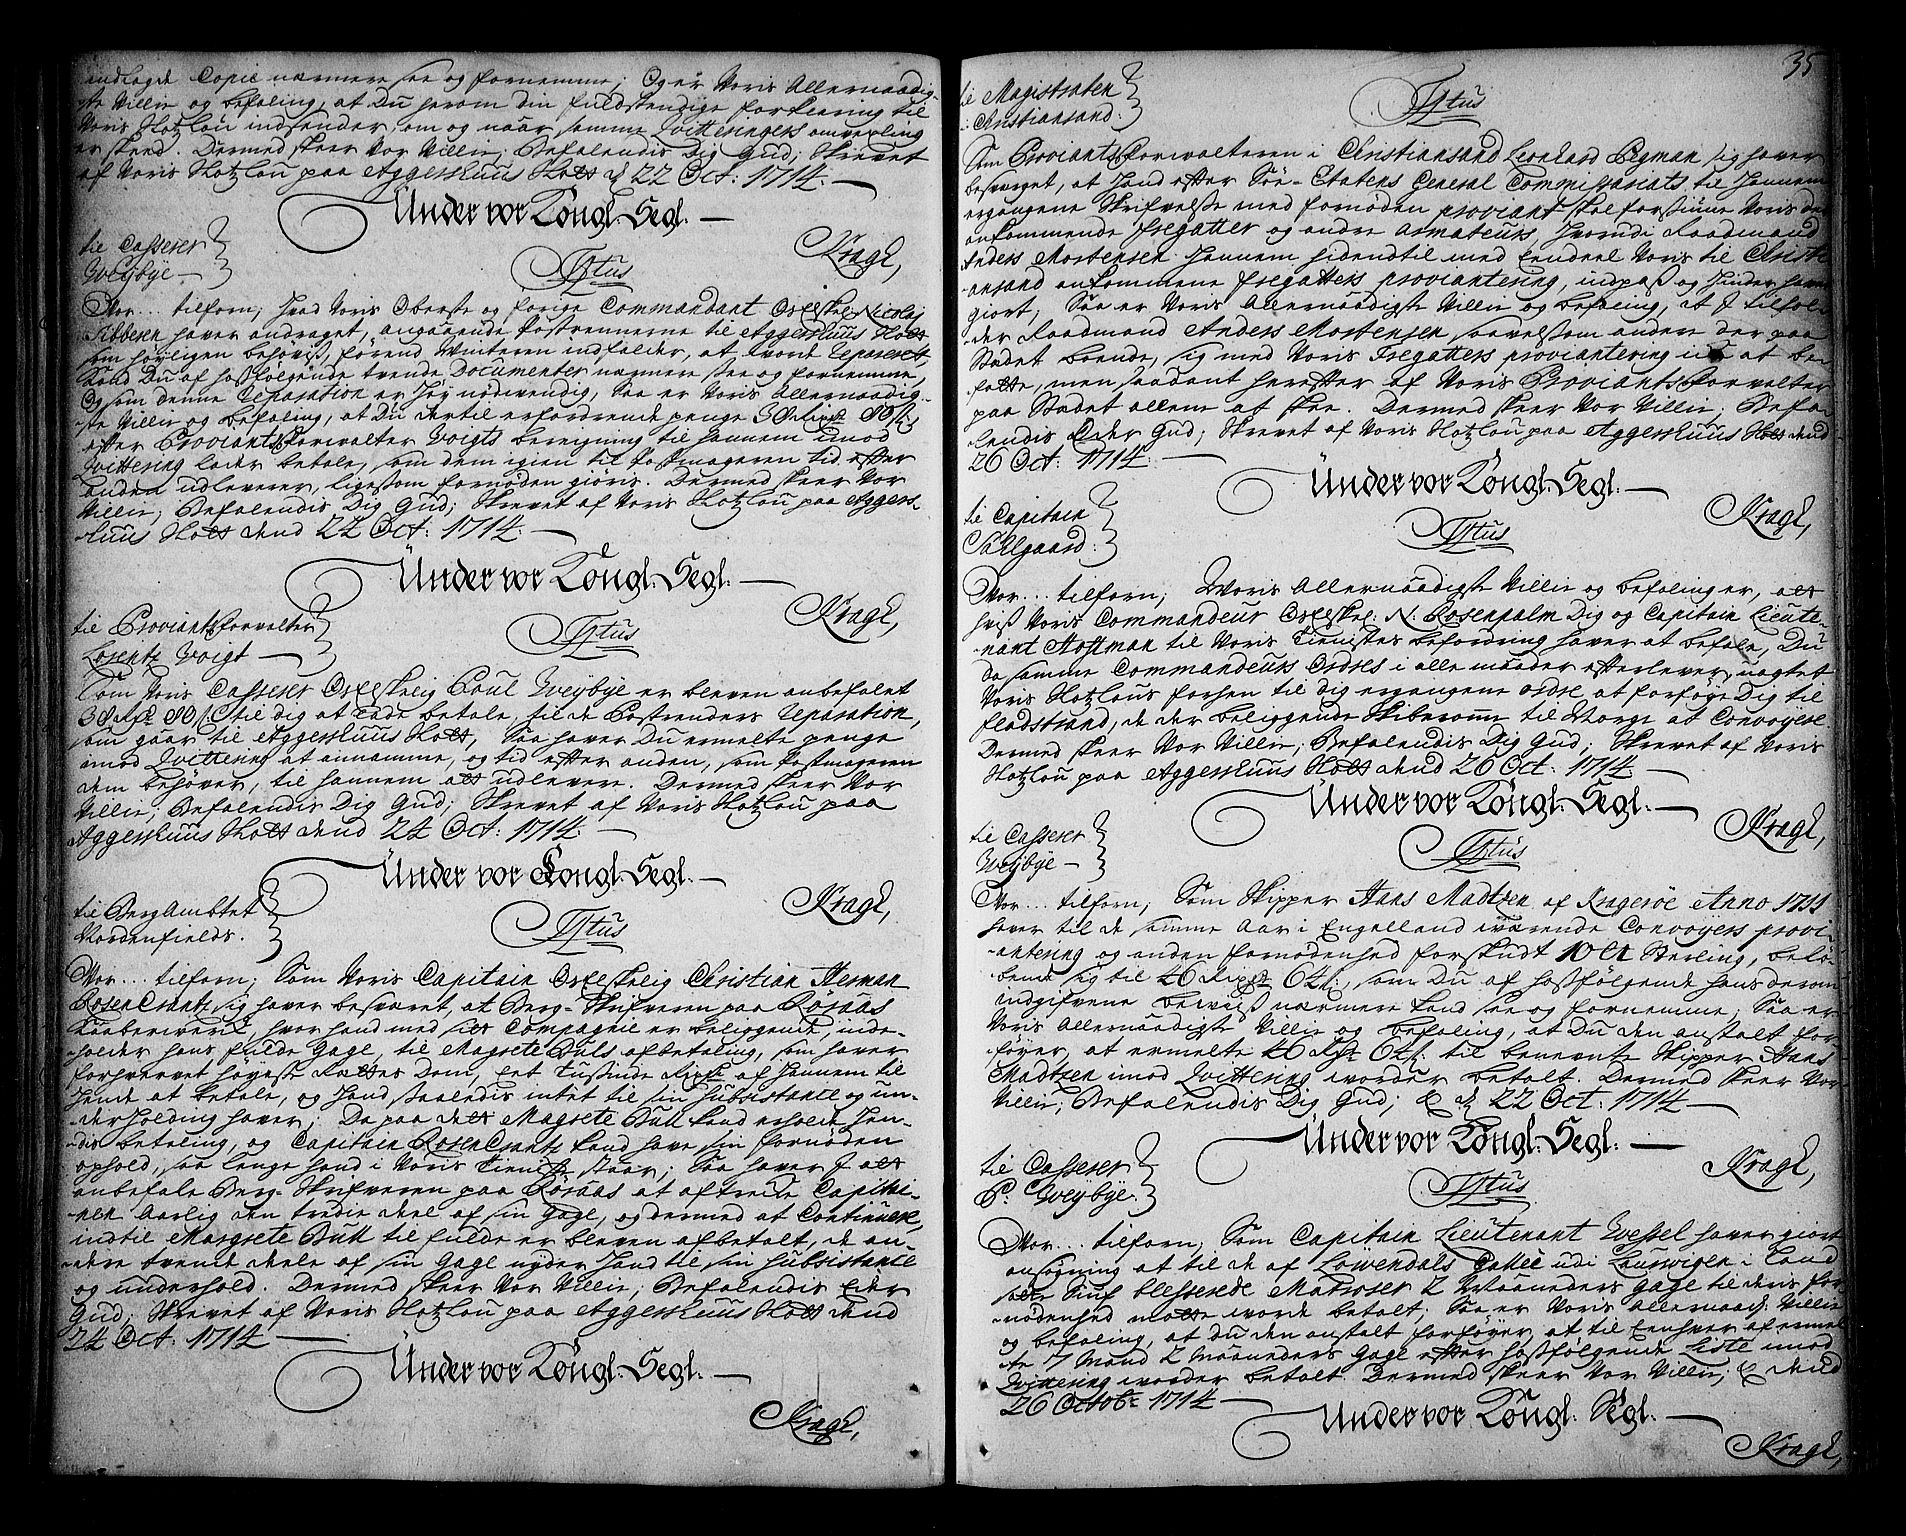 indlagde Copie nærmere see og fornemme; Og er Voris Allernaadig-
-ste Villie og befaling, at Du herom din fuldstendige forklaring til
Voris Slotzlou indsender, om og naar samme Qvitteringers omvexling
er skeed. Dermed skeer Vor Villie, Befalendis Dig Gud; Skrevet
af Voris Slotzlou paa Aggershuus Slott d. 22 Oct: 1714.
Under vor Kongl. Segl.
Kragh,
til Casserer
Weybye
Titus
Vor... tilforn; Hvad Voris Oberste og forige Commandant Os Elskel. Nicolaj
Sibbern haver andraget, angaaende Postrennerne til Aggershuus Slott
som høyligen behøvis, førend Winteren indfalder, at worde Repareret,
Kand Du af hosfølgende tvende Documenter nærmere see og fornemme,
Og som denne Reparation er høy nødvendig, Saa er Voris Allernaadig-
-ste Villie og befaling, at Du dertil erfordrende penge
efter Proviantzforvalter Voigts beregning til hannem imod
Qvittering lader betale, som dem igien til Postmageren tid efter
anden udleverer, ligesom fornøden giøris. Dermed skeer Vor
Villie, Befalendis Dig Gud; Skrevet af Voris Slotzlou paa Aggers-
-huus Slott dend 22 Oct: 1714.
Under vor Kongl. Segl.
Kragh,
til Proviantzforvalter
Lorentz Voigt
Titus
Som Voris Casserer Os Elskelig Poul Weybye er bleven anbefalet
til dig at lade betale, til de Postrenders Reparation,
som gaar til Aggershuus Slott, Saa haver Du ermelte penge
imod Qvittering at annamme, og tid efter anden, som Postmageren
dem behøver, til hannem att udlevere. Dermed skeer Vor
Villie, Befalendis Dig Gud; Skrevet af Voris Slotzlou paa
Aggershuus Slott dend 24 Oct: 1714.
Under vor Kongl. Segl.
Kragh,
til BergAmbtet
Nordenfields.
Titus
Vor... tilforn; Som Voris Capitain Os Elskelig Christian Herman
RosenCrantz sig haver besværet, at Berg-Skrifveren paa Røraas
Kaaberwerk, hvor hand med sit Compagnie er beliggende, inde-
-holder hans fulde Gage, til Magrete Bulls afbetaling, som haver
forhvervet høyeste Rettes Dom, Eet Tusinde Rixdr af hannem til
hende at betale, og hand saaledis intet til sin Subsistance og un-
-derholding haver; Da paa det Magrete Bull kand erholde hen-
-dis betaling, og Capitain RosenCrantz kand have sin fornøden
ophold, saa lenge hand i Voris Tieniste staar; Saa haver I at
anbefale Berg-Skrifveren paa Røraas at aftrede Capitai-
-nen Aarlig den tredie deel af sin Gage, og dermed at Continuere
indtil Margrete Bull til fulde er bleven afbetalt, de an-
-dere tvende deele af sin Gage nyder hand til sin Subsistance
og underhold. Dermed skeer Vor Villie, Befalendis Eder
Gud; Skrevet af Voris Slotzlou paa Aggershuus Slott dend
24 Oct: 1714
Under vor Kongl. Segl.
Kragh,
35
til Magistraten
i Christiansand.
Titus
Som Proviantzforwalteren i Christiansand Leonhard Pegman sig haver
besværget, at hand efter Søe-Etatens General Commissariats til hannem
ergangene Skrifvelse med fornøden proviant skal forsiune Voris der
ankommende fregatter og andre Armateurs, hvorudi Raadmand
Anders Mortensen hannem hidendtil med Eendeel Voris til Christi-
ansand ankommene fregatters proviantering, indpass og hinder haver
giort, Saa er Voris Allernaadigste Villie og befaling, at I tilhol-
der Raadmand Anders Mortensen saavelsom andere der paa
Stædet boende, sig med Voris Fregatters proviantering icke at be-
fatte, men saadant herefter af Voris Proviantzforvalter
paa Stædet allene at skee. Dermed skeer Vor Villie, Befa-
-lendis Eder Gud; Skrevet af Voris Slotzlou paa Aggershuus Slott dend
26 Oct: 1714.
Under vor Kongl. Segl.
Kragh,
til Capitain
Sehlgaard.
Titus
Vor... tilforn; Woris Allernaadigste Villie og befaling er, at
hvis Voris Commandeur Os Elskel. N: Rosenpalm Dig og Capitain Lieute-
-nant Hoffman til Voris Tienistes befordring haver at befale, Du
da samme Commandeurs Ordres i alle maader efterlever, uagtet
Voris Slotzlous forhen til dig ergangene ordre, at forføye Dig til
Fladstrand, de der beliggende Skiberomme til Norge at Convoyere.
Dermed skeer Vor Villie, Befalendis Dig Gud; Skrevet af Voris
Slotzlou paa Aggershuus Slott dend 26 Oct: 1714.
Under vor Kongl. Segl.
Kragh,
til Casserer
Weybye
Titus
Vor... tilforn; Som Skipper Hans Madtzen af Kragerøe Anno 1711
haver til de samme Aar i Engelland værende Convoyers provi-
-antering og anden fornødenhed forskudt 10 Lt Sterling, belø-
bende sig til 46 Rixdr 64 s., som Du af hosfølgende hans derom
indgifvene beviiss nærmere kand see og fornemme; Saa er
Voris Allernaadigste Villie og befaling, at Du den anstalt for-
-føyer, at ermelte 46 Rixdr 64 s. til benevnte Skipper Hans
Madtzen imod Qvittering worder betalt. Dermed skeer Vor
Villie, Befalendis Dig Gud; d. 22 Oct: 1714
Under vor Kongl. Segl.
Kragh,
til Casserer
P: Weybye.
Titus
Vor... tilforn; Som Capitain Lieutenant Wessel haver giort
ansøgning at til de af Løwendals Gallei udi Laurwigen i Land
satte Siuf blesserede Matroser 2 Maaneders Gage til deris for
nødenhed motte worde betalt; Saa er Voris Allernaad: Villie
og befaling, at du den anstalt forføyer, at til Eenhver af ermel
te 7 Mand 2 Maaneders Gage efter hosfølgende Liste imod
Qvittering worder betalt. Dermed skeer Vor Villie, dend
26 Octob: 1714
Under vor Kongl. Segl.
Kragh,